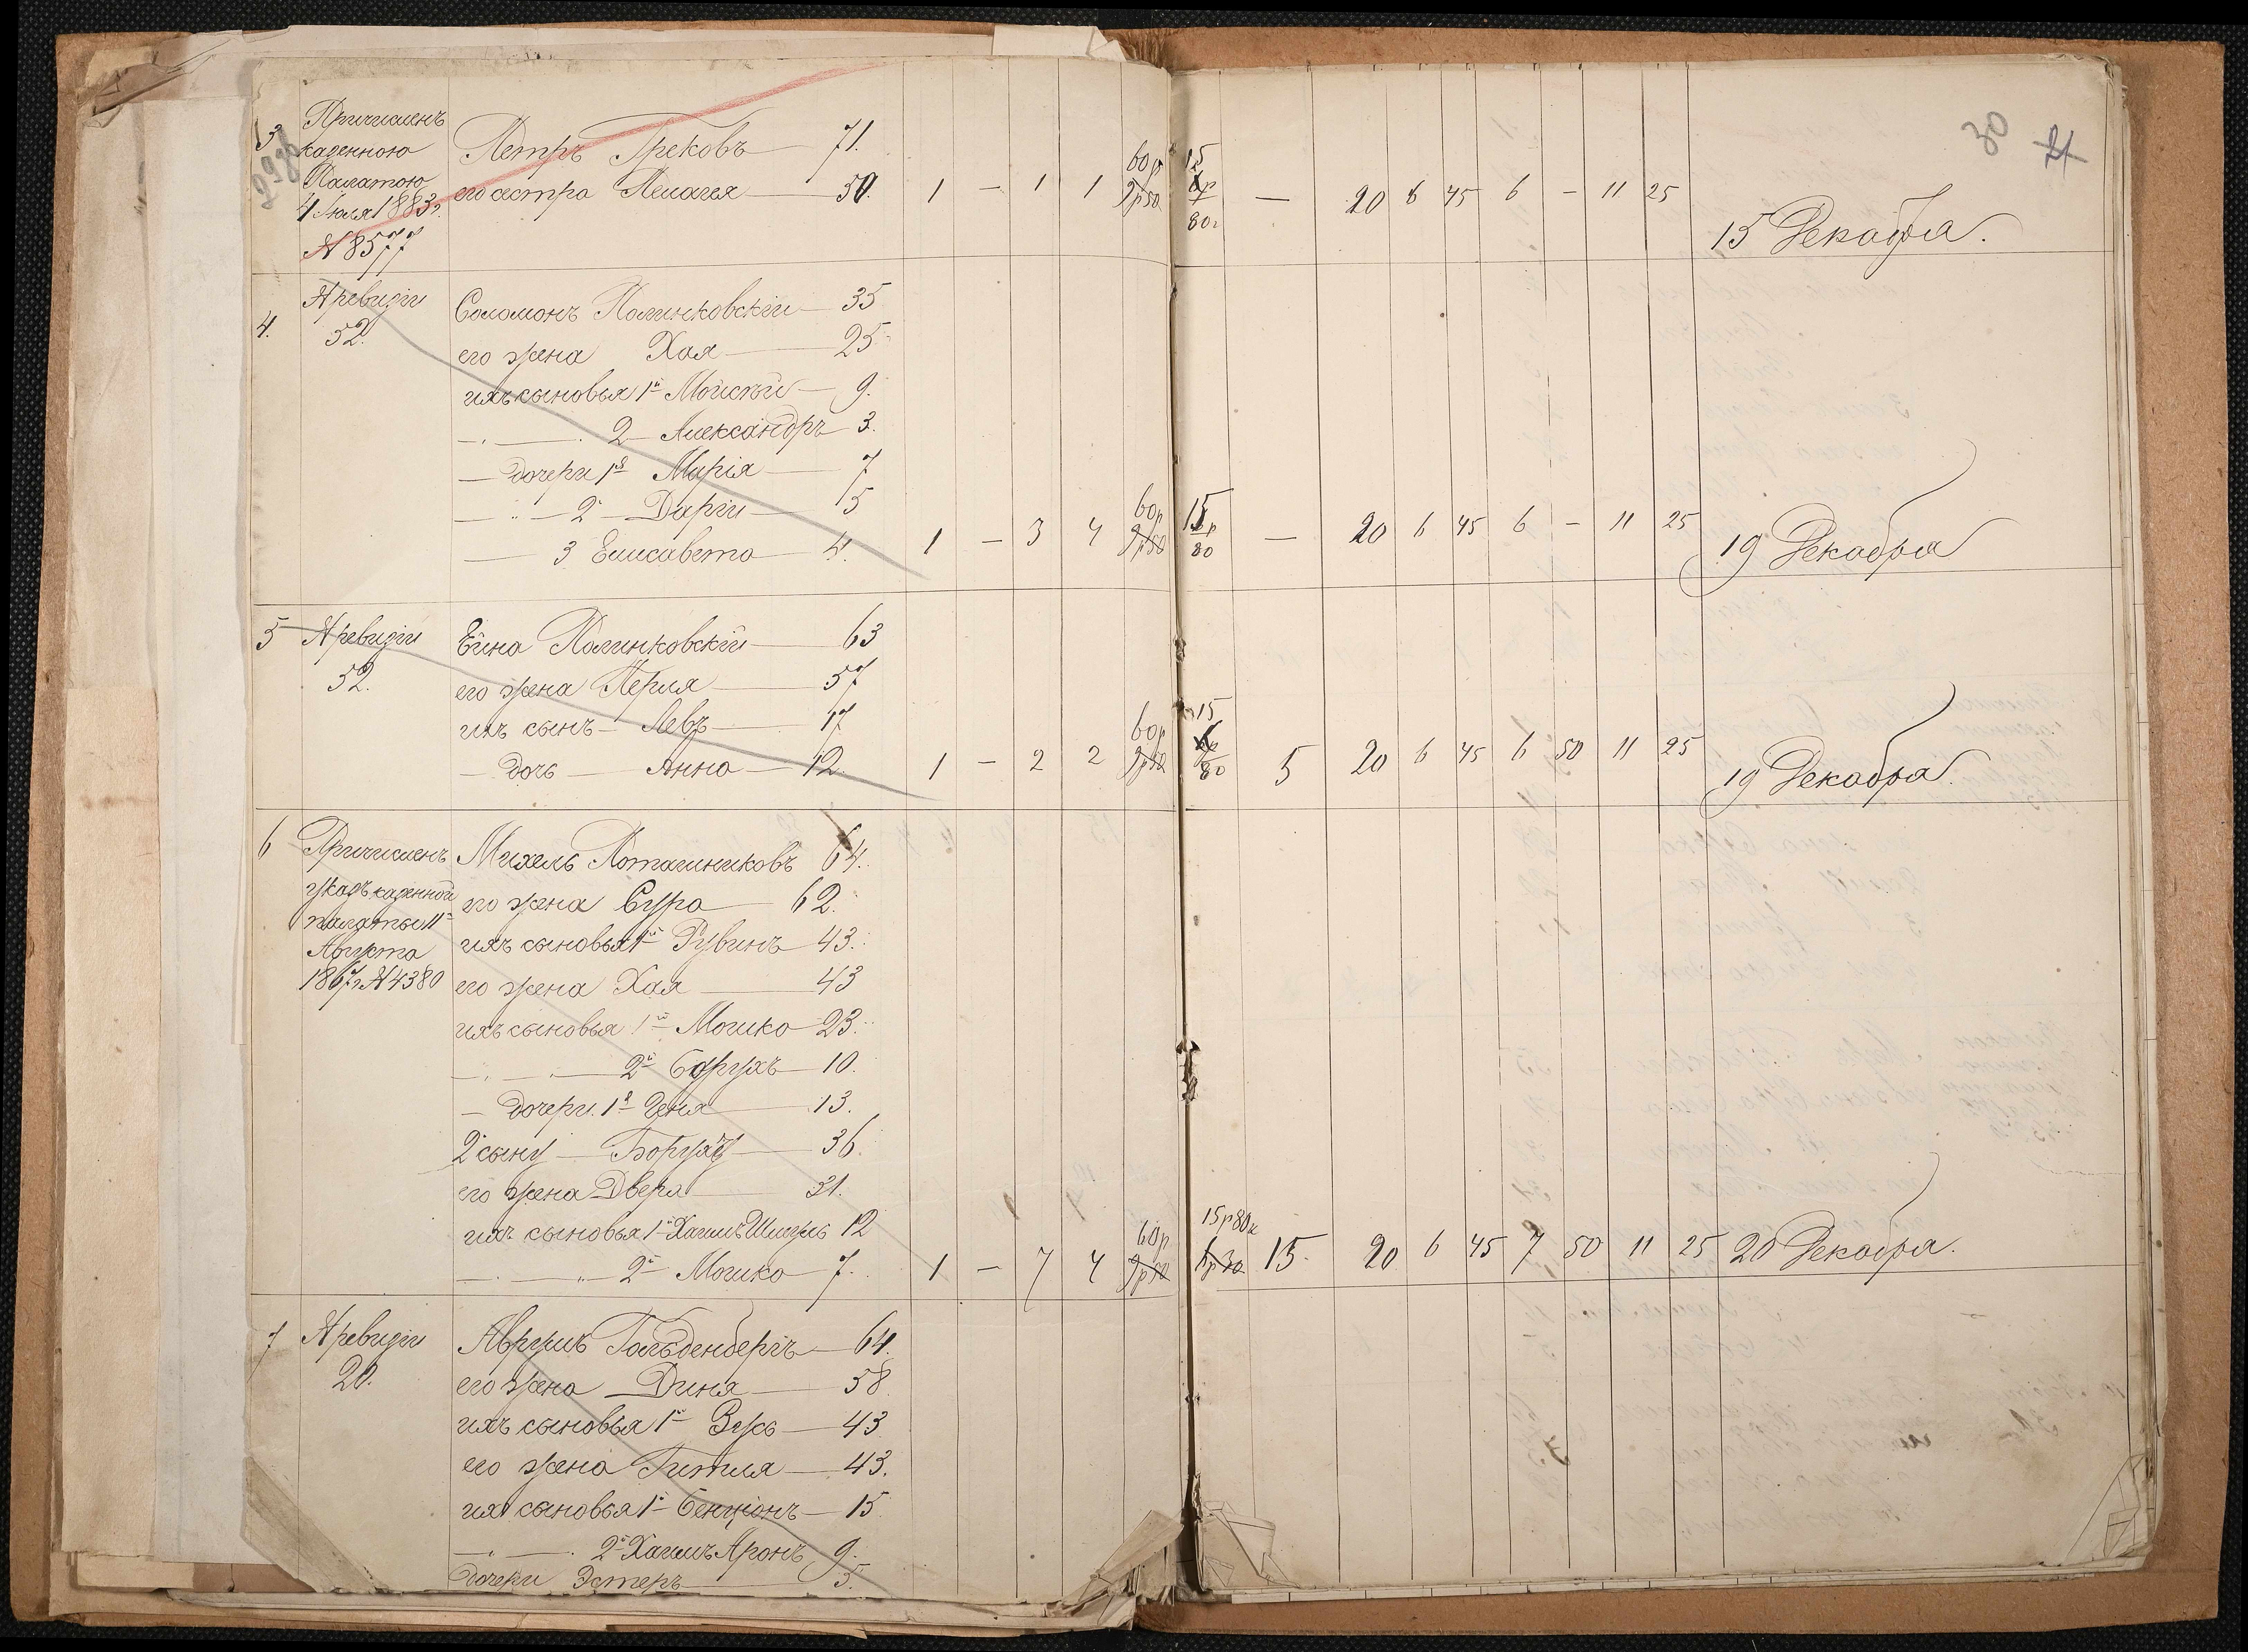 30 21
3 Причисленъ
казенною
Палатою
4 Іюля 1883 г.
№ 8577
Петръ Грековъ — 71.
его сестра Пелагея — 50. 1 — 1 1 60р 9р50 15 80 — 20 6 45 6 — 11 25 15 Декабря.
4. № ревизіи
52.
Соломонъ Полинковскій — 35
его жена Хая — 25
ихъ сыновья 1й Мойсѣй — 9.
— „ — 2 — Александръ — 3.
— дочери 1я Марія — 7
— „ — 2 — Дарія — 5
— 3 Елисавета — 4. 1 — 3 4 60р 9р50 15р 80 — 20 6 45 6 — 11 25 19 Декабря
5 № ревизіи
52.
Ейна Полинковскій — 63
его жена Перля — 57
ихъ сынъ — Левъ — 17
— дочь — Анна — 12. 1 — 2 2 60р 9р50 15 80 5 20 6 45 6 50 11 25 19 Декабря.
6 Причисленъ
указъ казенной
палаты 11
Августа
1867 г № 4380
Михель Поташниковъ 64.
его жена Сура — 62.
ихъ сыновья 1й Рувинъ — 43.
его жена Хая — 43
ихъ сыновья 1й Мошко — 23.
— „ — 2й Борухъ — 10.
— дочери. 1я Геня — 13.
2 сынъ — Борухъ — 36.
его жена Двера — 31.
ихъ сыновья 1й Хаимъ Шмуль 12
— „ — 2й Мошко — 7. 1 — 7 4 60р 9р50 15р80к 15. 20 6 45 7 50 11 25 20 Декабря.
7 № ревизіи
20.
Аврумъ Гольденбергъ — 64.
его жена — Диня — 58.
ихъ сыновья 1й Зусь — 43
его жена Гитля — 43.
ихъ сыновья 1й Бенціонъ — 15
— „ — 2й Хаимъ Аронъ 9.
дочери Эстеръ — 5.